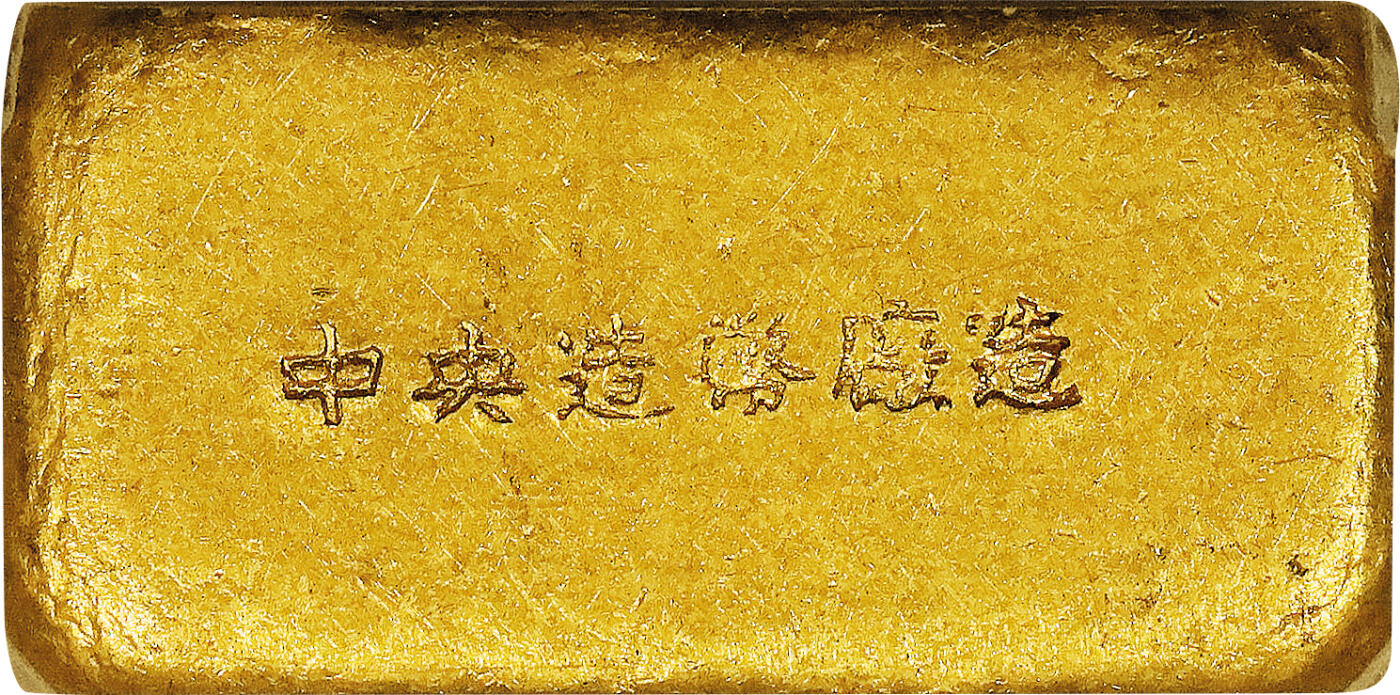 中央造幣廠造